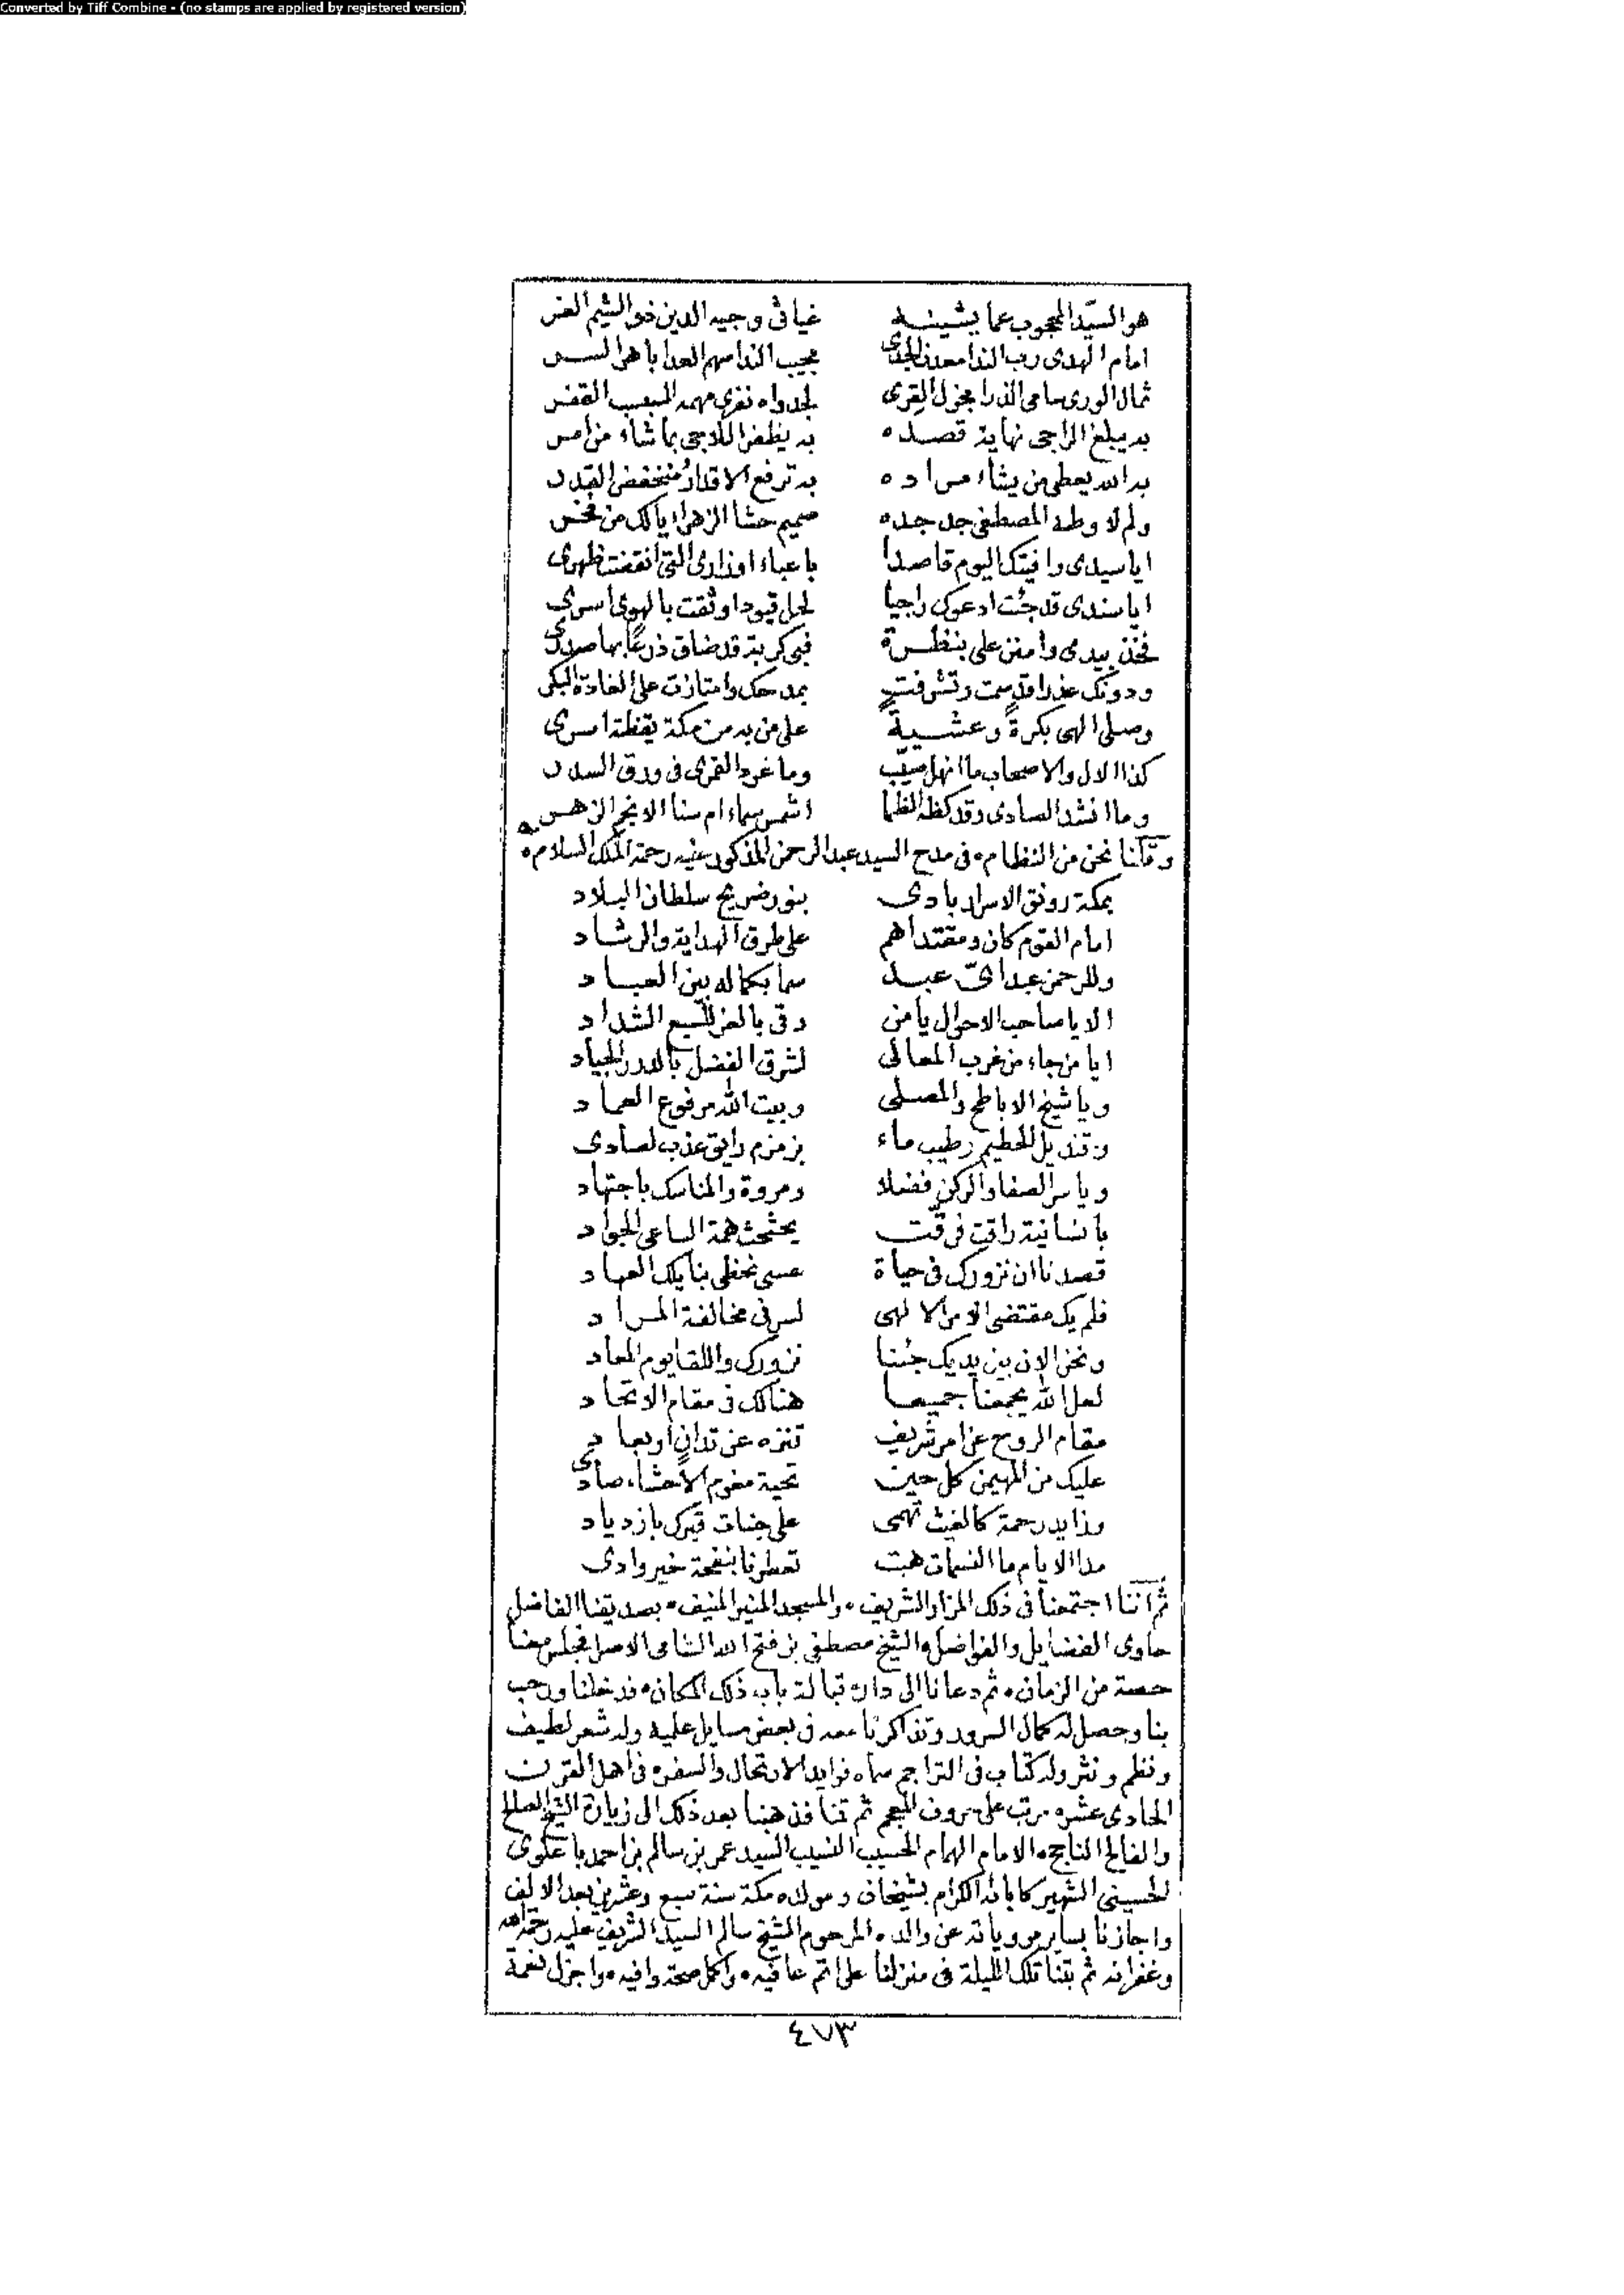 Converted by Tiff Combine - (no stamps are applied by registered version)
هو السيّد المحجوب عما يشينه غياثى وجيه الدين ذو الشيم الغر
امام الهدى رب الندا معدن الجدى مجيب الندا سهم العدا باهر السر
ثمال الورى حامى الذرا مجزل القرى لجدواه نفرى مهمه السبسب القفر
به يبلغ الراجى نهاية قصده به يظفر اللاجى بما شاء من امر
به الله يعطى من يشاء مراده به ترفع الاقدار منخفض القدر
ولم لا وطه المصطفى جد جده صميم حشا الزهراء يالك من فخر
ايا سيدى وافيتك اليوم قاصدا باعباء اوزارى التى انقضت ظهرى
ايا سندى قد جئت ادعوك راجيا لحل قيود اوثقت بالهوى اسرى
فخذ بيدى وامنن على بنظرة فبى كربة قد ضاق ذرعًا بها صدرى
ودونك عذرا قد سمت وتشرفت بمدحك وامتازت على الغادة البكر
وصلى الهى بكرةً وعشية على من به من مكة يقظة اسرى
كذا الال والاصحاب ما انهل صيّب وما غرد القمرى فى ورق السدر
وما انشد الصادى وقد كظه الظما اشمس سماء ام سنا الانجم الزهر
وقلنا نحن من النظام ه فى مدح السيد عبد الرحمن المذكور عليه رحمة الملك السلام ه
بمكة رونق الاسرار بادى بنور ضريح سلطان البلاد
امام القوم كان ومقتداهم على طرق الهداية والرشاد
وللرحمن عبد اىّ عبد سما بكماله بين العباد
الا يا صاحب الاحوال يا من رقى بالعز للسبع الشداد
ايا من جاء من غرب المعالى لشرق الفضل بالدرر الجياد
ويا شيخ الاباطح والمصلى وبيت الله مرفوع العماد
وقنديل الحطيم وطيب ماء بزمزم رايق عذب لصادى
ويا سر الصفا والركن فضلا ومروة والمناسك باجتهاد
بانسانية راقت فرقّت يحثحث همة الساعى الجواد
قصدنا ان نزورك فى حياة عسى نحظى بنايلك العهاد
فلم يك مقتضى الامر الالهى لسر فى مخالفة المراد
ونحن الان بين يديك جئنا نزورك واللقا يوم المعاد
لعل الله يجمعنا جميعا هنالك فى مقام الاتحاد
مقام الروح عن امر شريف تنزه عن تدانٍ او بعاد
عليك من المهيمن كل حين تحية مغرم الاحشاء صادى
وزايد رحمة كالغيث تهمى على جنبات قبرك بازدياد
مدا الايام ما النسمات هبت تعطرنا بنفحة خير وادى
ثم اننا اجتمعنا فى ذلك المزار الشريف ه والمسجد المنير المنيف ه بصديقنا الفاضل
حاوى الفضايل والفواضل ه الشيخ مصطفى بن فتح الله الشامى الاصل فجلس معنا
حصة من الزمان ه ثم دعانا الى داره قبالة باب ذلك المكان ه فدخلنا ورحب
بنا وحصل له كمال السرور وتذاكرنا معه فى بعض مسايل علمية وله شعر لطيف
ونظم ونثر وله كتاب فى التراجم سماه فوايد الارتحال والسفر ه فى اهل القرن
الحادى عشر ه مرتب على حروف المعجم ثم قمنا فذهبنا بعد ذلك الى زيارة الشيخ الصالح
والفالح الناجح ه الامام الهمام الحسيب النسيب السيد عمر بن سالم بن احمد باعلوى
الحسينى الشهير كابائه الكرام بشيخان ومولده مكة سنة سبع وعشرين بعد الالف
واجازنا بساير مروياته عن والده المرحوم الشيخ سالم السيد الشريف عليه رحمة الله
وغفرانه ثم بتنا تلك الليلة فى منزلنا على اتم عافيه ه واكمل صحة وافيه ه واجزل نعمة
٤٧٣